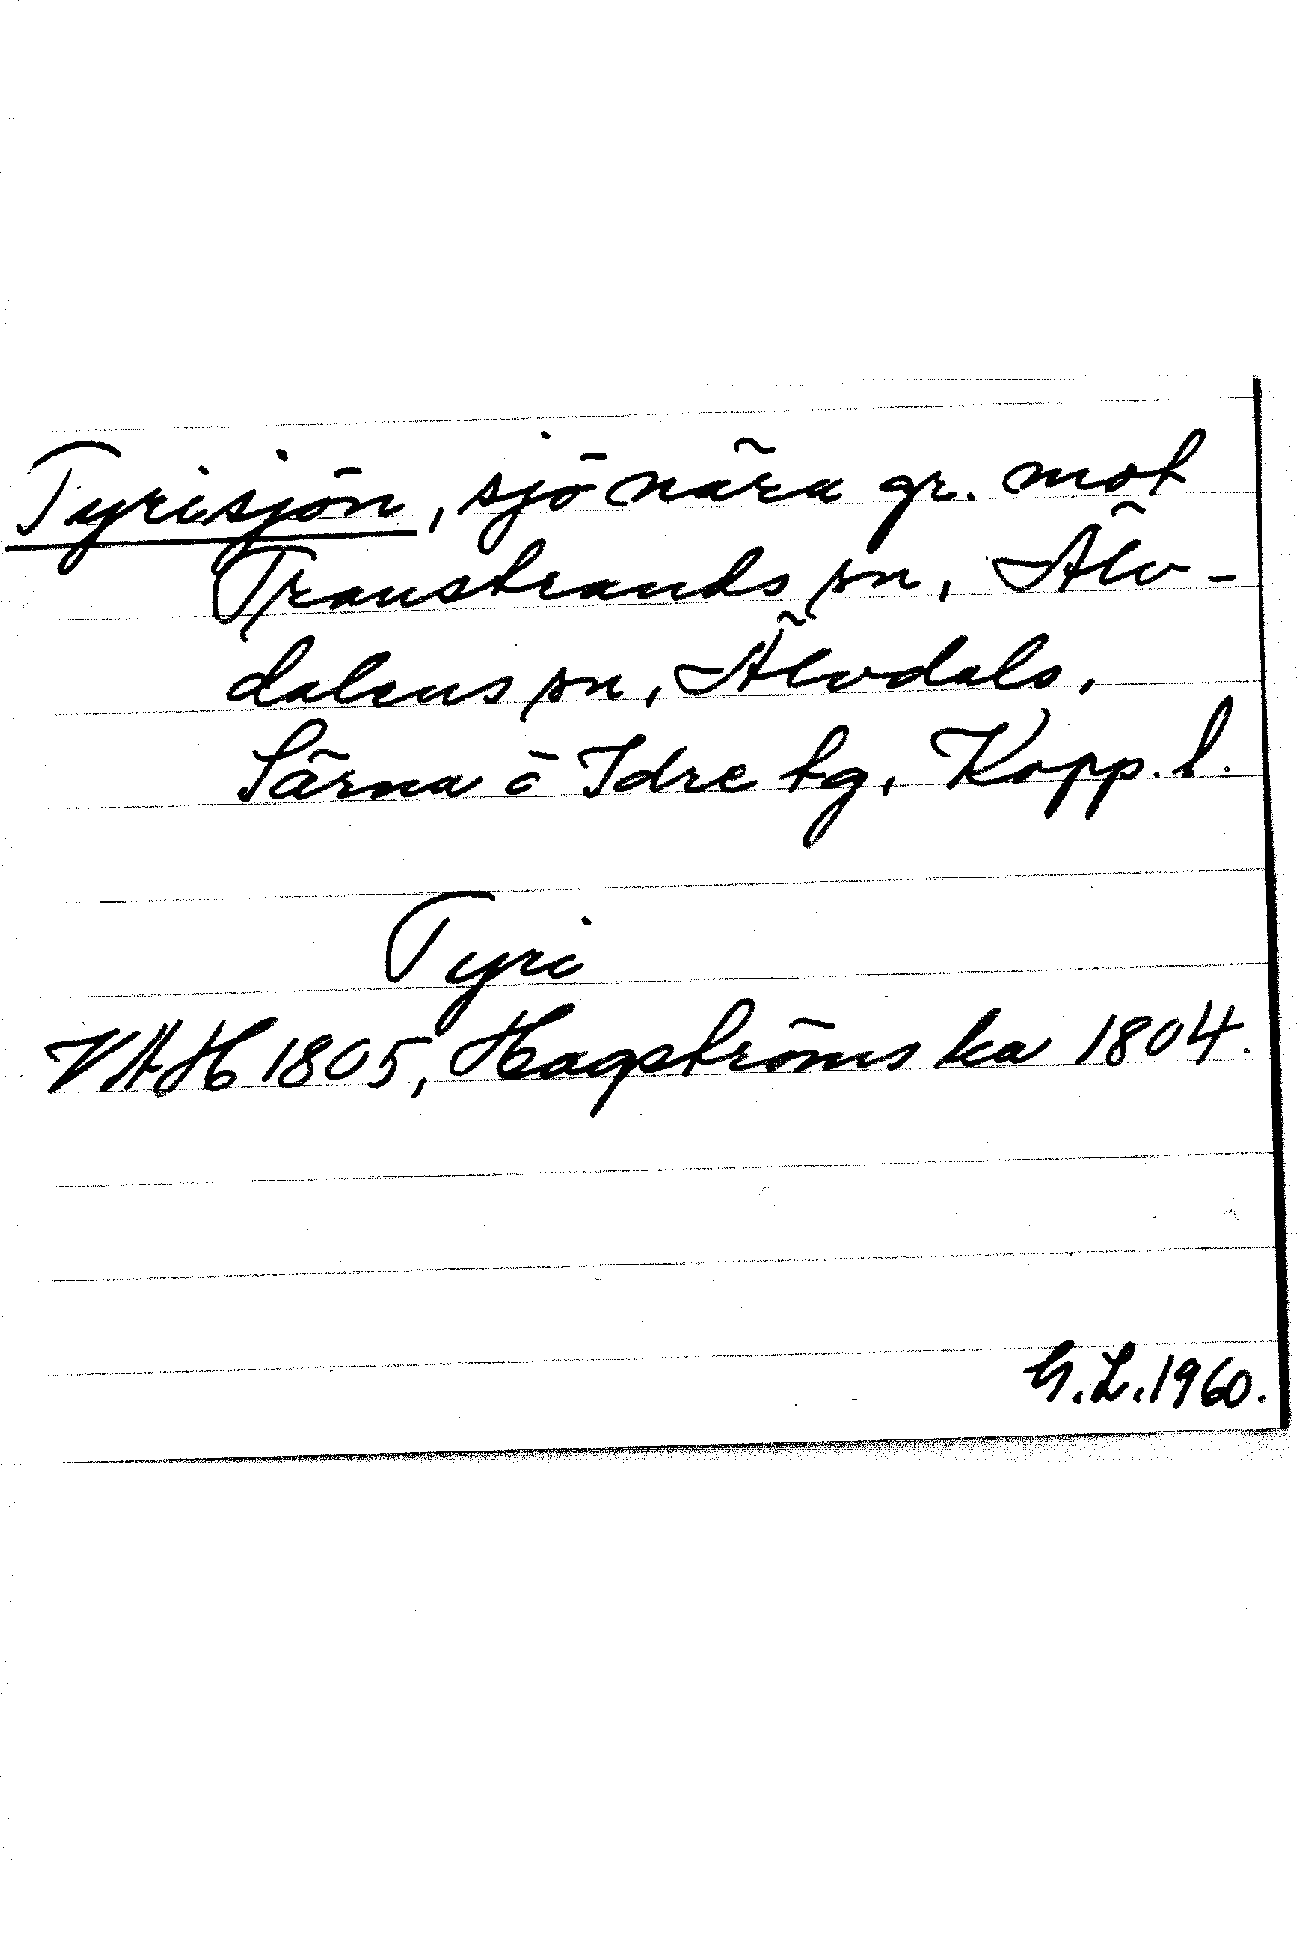 Tyrisjön, sjö nära gr. mot
Transtrands sn, Älv-
dalens sn, Älvdals,
Särna o Idre tg, Kopp. l.
Tyri
VAH 1805, Hagströms ka 1804.
G.L. 1960.